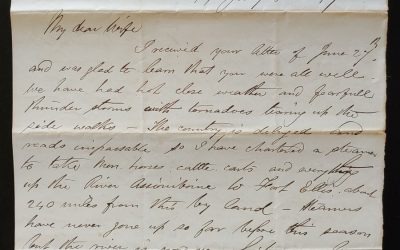 My dear Wife
I received your letter of June 27th
and was glad to learn that you were all well.
We have had hot close weather and fearfull
thunder storms with tornadoes tearing up the
side walks – The country is deluged and
roads impassable so I have chartered a steamer
to take Men horses, cattle, carts and everything
up the River Assiniboine to Fort Ellis about
240 miles from this by land – Steamers
have never gone up so far before this season
but the river is